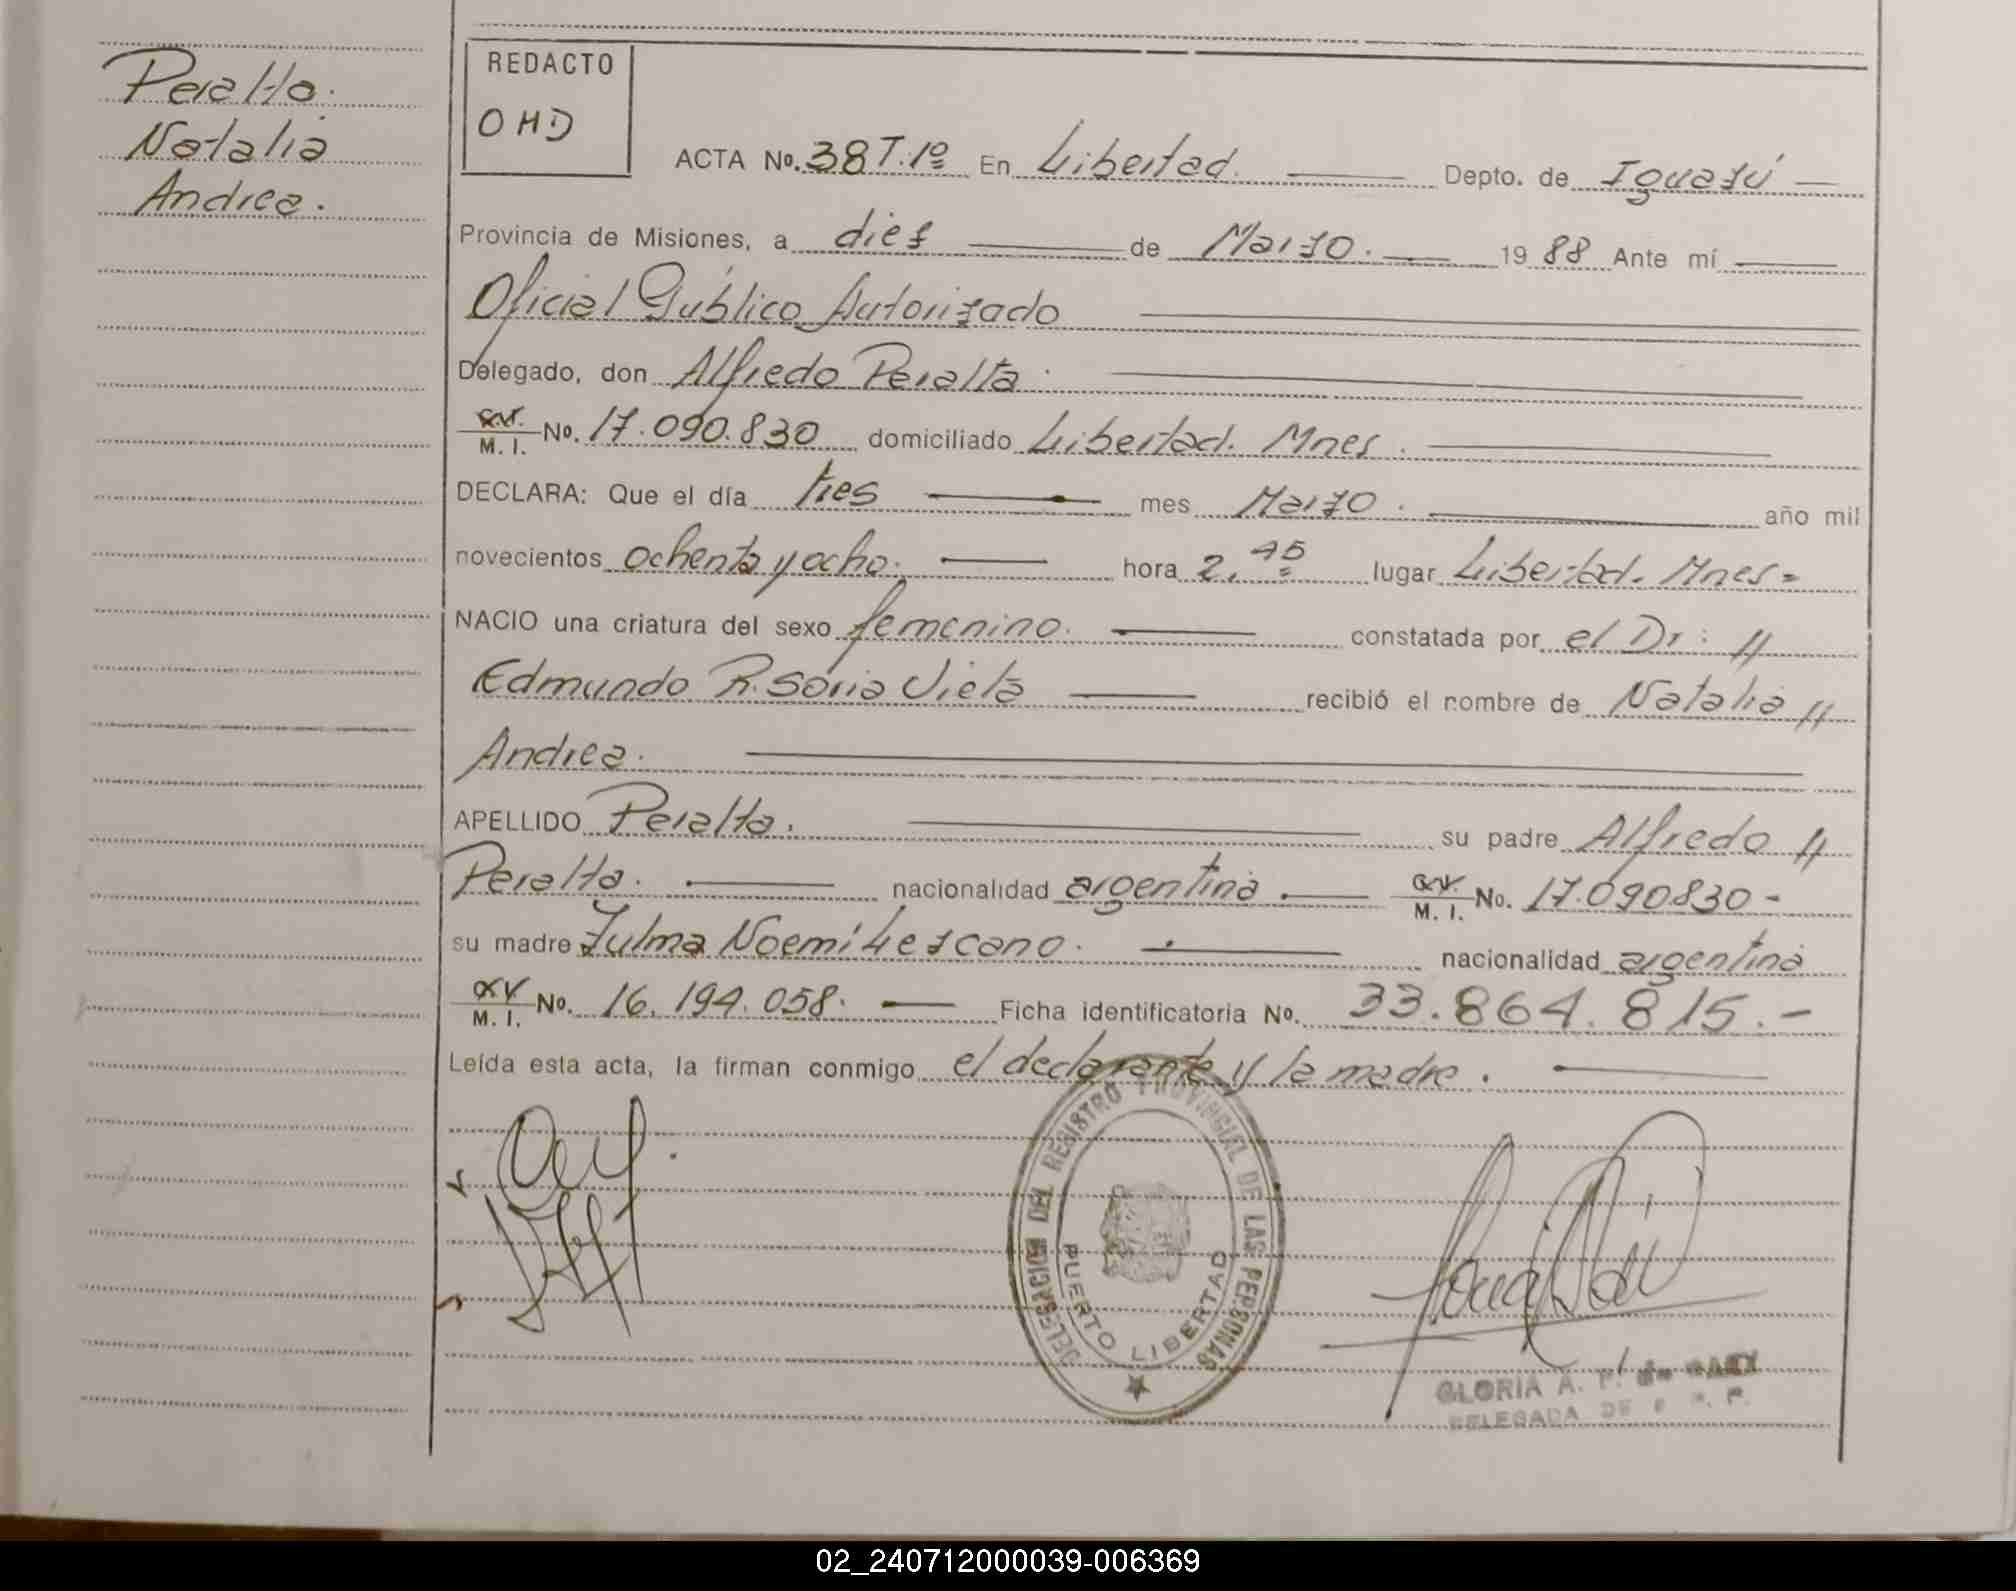 Peralta.
Natalia
Andrea.
REDACTO
OHD
ACTA No. 38 T. 1º En Libertad. Depto. de Iguazú
Provincia de Misiones, a diez de Marzo. 1988 Ante mí
Oficial Público Autorizado
Delegado, don Alfredo Peralta.
M. I. No. 17.090.830 domiciliado Libertad. Mnes.
DECLARA: Que el día tres mes Marzo. año mil
novecientos ochenta y ocho. hora 2,45 lugar Libertad. Mnes=
NACIO una criatura del sexo femenino. constatada por el Dr: //
Edmundo R. Soria Vieta recibió el nombre de Natalia //
Andrea.
APELLIDO Peralta. su padre Alfredo //
Peralta. nacionalidad argentina. M. I. No. 17.090830-
su madre Zulma Noemí Lezcano. nacionalidad argentina
M. I. No. 16.194.058. Ficha identificatoria No. 33.864.815.-
Leída esta acta, la firman conmigo el declarante y la madre.
DELEGACION DEL REGISTRO PROVINCIAL DE LAS PERSONAS
PUERTO LIBERTAD
GLORIA A.
DELEGADA DE
02_240712000039-006369